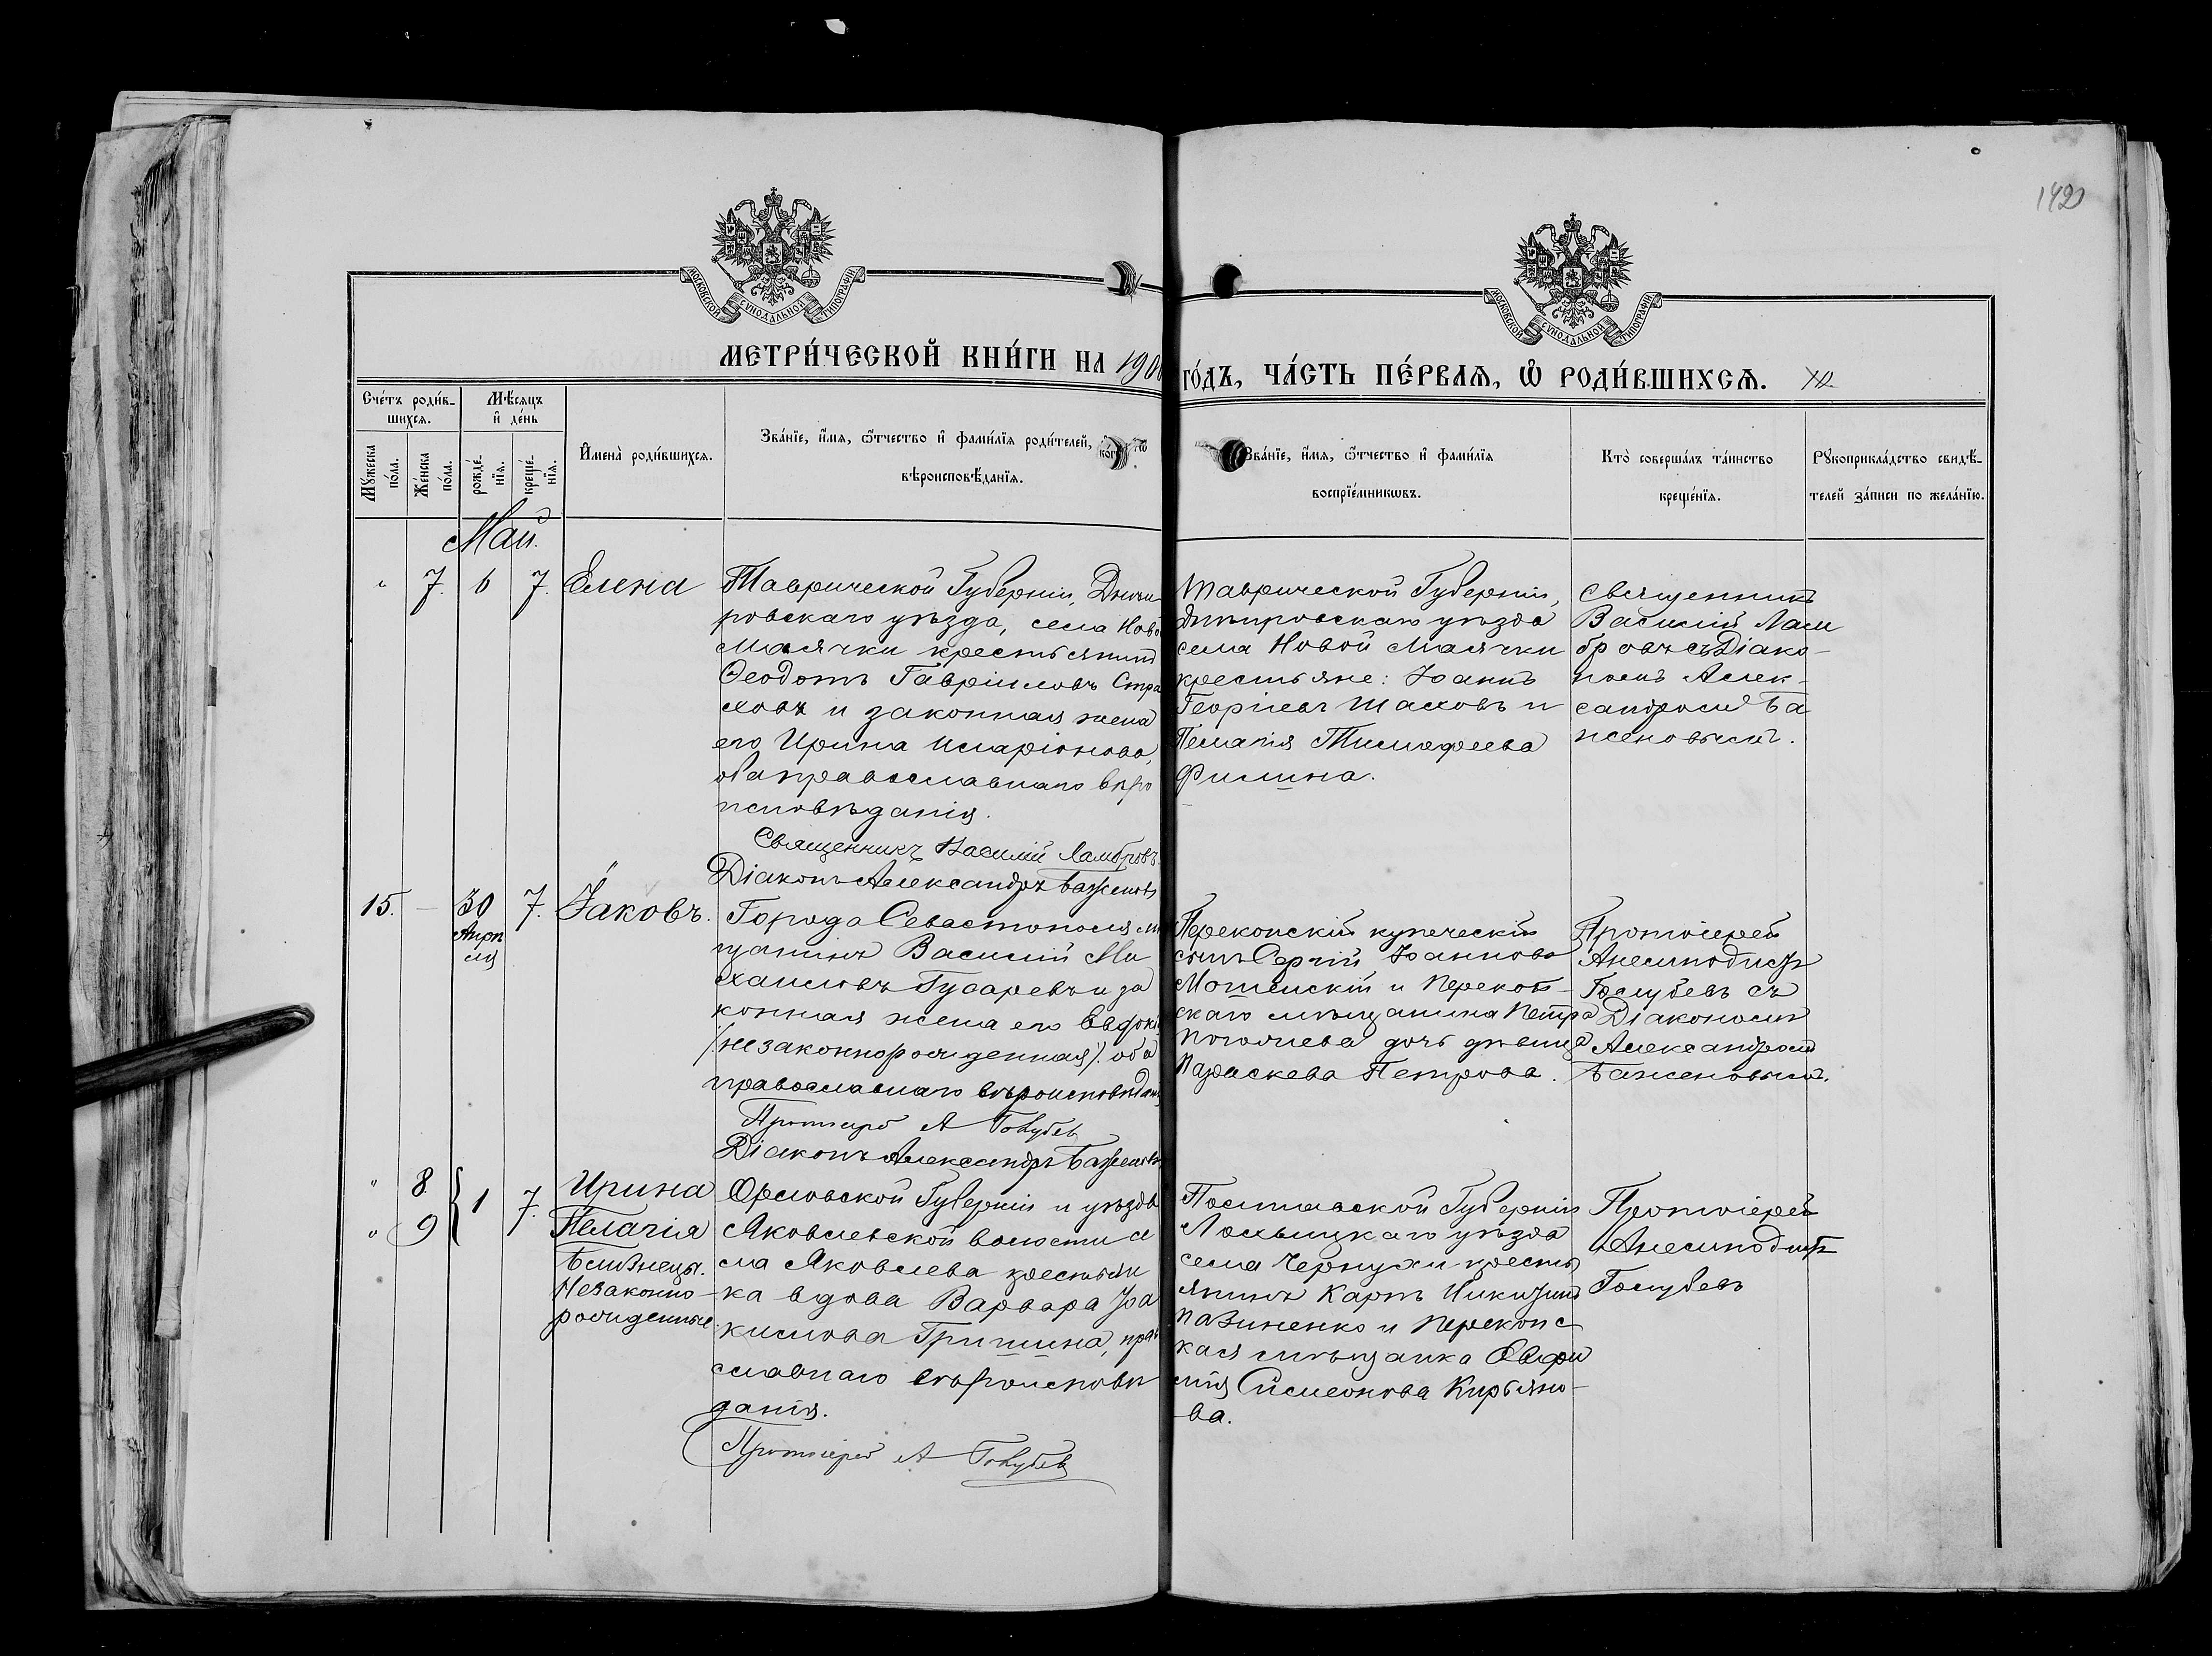 1420
МОСКОВСКОЙ СУНОДАЛЬНОЙ ТИПОГРАФІИ
МОСКОВСКОЙ СУНОДАЛЬНОЙ ТИПОГРАФІИ
МЕТРИ́ЧЕСКОЙ КНИ́ГИ НА 190
ГО́ДЪ, ЧА́СТЬ ПЕ́РВАѦ, Ѽ РОДИ́ВШИХСѦ.
Сче́тъ роди́в-
шихсѧ.
Мѣ́сѧцъ
и҆ де́нь
Мꙋ́жеска
по́ла.
Же́нска
по́ла.
рожде́-
нїѧ.
креще́-
нїѧ.
И҆мена̀ роди́вшихсѧ.
Зва́нїе, и҆́мѧ, ѻ҆́тчество и҆ фами́лїѧ роди́телей,
вѣроисповѣ́данїѧ.
Зва́нїе, и҆́мѧ, ѻ҆́тчество и҆ фами́лїѧ
воспрїе́мникωвъ.
Кто̀ соверша́лъ та́инство
креще́нїѧ.
Рꙋкоприкла́дство свидѣ́-
телей за́писи по жела́нїю.
Май.
" 7. 6 7. Елена
Таврической Губерніи, Днѣп
ровскаго уѣзда, села Ново
Маячки крестьянинъ
Ѳеодотъ Гавріиловъ Стра
ховъ и законная жена
его Ирина Иларіонова,
оба православнаго вѣро
исповѣданія.
Священникъ Василій Ламбровъ
Діаконъ Александръ Баженовъ
Таврической Губерніи,
Днѣпровскаго уѣзда
села Новой Маячки
крестьяне: Іоаннъ
Георгіевъ Шаховъ и
Пелагія Тимофеева
Филина.
Священникъ
Василій Лам
бровъ съ Діако-
номъ Алек-
сандромъ Ба
женовымъ.
15. — 30 7. Іаковъ.
Апрѣ
ля
Города Севастополя мѣ
щанинъ Василій Ми
хаиловъ Гусаревъ и за
конная жена его Евдокі
/незаконнорожденная/. оба
православнаго вѣроисповѣдан
Протоіерей А Голубев
Діаконъ Александръ Баженовъ
Перекопскій купеческій
сынъ Сергій Іоанновъ
Мошенскій и Перекоп-
скаго мѣщанина Петра
дочь дѣвица
Параскева Петрова.
Протоіерей
Анемподистъ
Голубевъ съ
Діакономъ
Александромъ
Баженовымъ.
" 8. 1 7. Ирина
" 9 Пелагія
Близнецы.
Незаконно-
рожденные.
Орловской Губерніи и уѣзда
Яковлевской волости се
ла Яковлева крестьян
ка вдова Варвара Іоа
кимова Гришина, прав
славнаго вѣроисповѣ
данія.
Протоіерей А Голубев
Полтавской Губерніи
Лохвицкаго уѣзда
села Чернухи кресть
янинъ Карпъ Никитинъ
Пазиненко и Перекопс
кая мѣщанка Евфи
мія Симеонова Кирьяно-
ва.
Протоіерей
Анемподистъ
Голубевъ